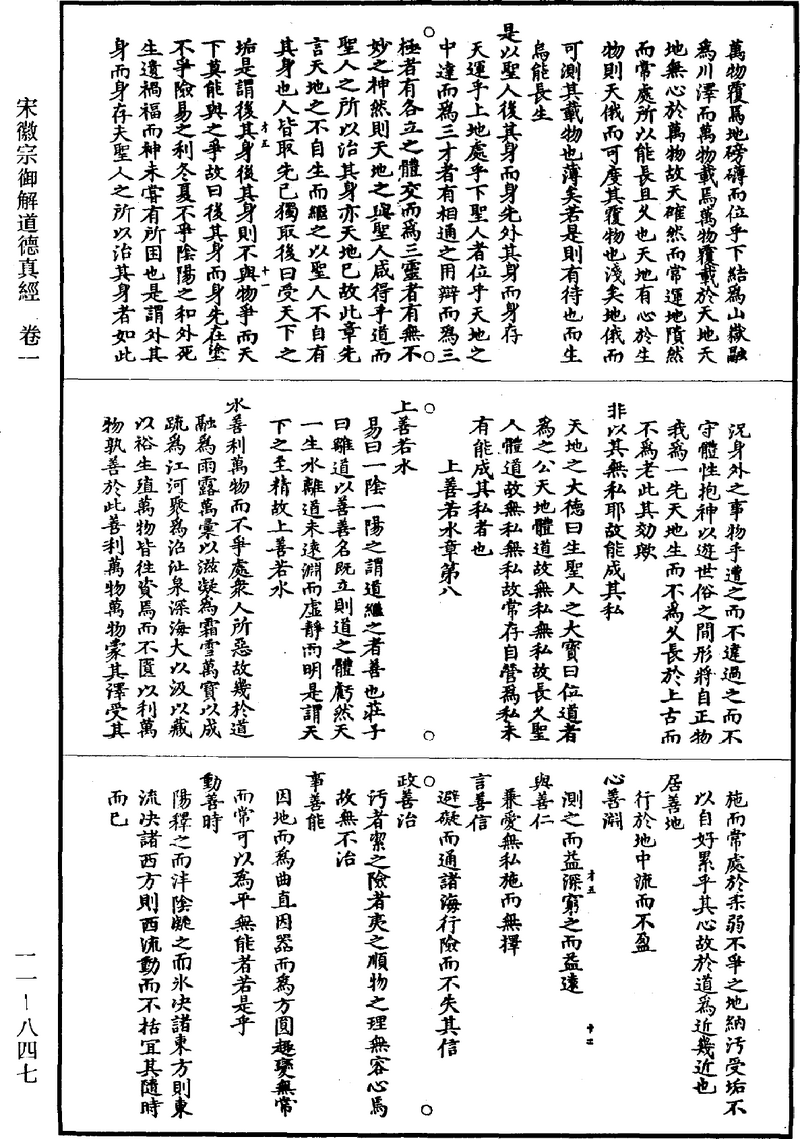 萬物覆焉地磅礴而位乎下結爲山嶽融
爲川澤而萬物載焉萬物覆載於天地天
地無心於萬物故天確然而常運地隤然
而常處所以能長且久也天地有心於生
物則天俄而可度其覆物也淺矣地俄而
可測其載物也薄矣若是則有待也而生
烏能長生
是以聖人後其身而身先外其身而身存
天運乎上地處乎下聖人者位乎天地之
中達而爲三才者有相通之用辯而爲三
極者有各立之體交而爲三靈者有無不
妙之神然則天地之與聖人咸得乎道而
聖人之所以治其身亦天地已故此章先
言天地之不自生而繼之以聖人不自有
其身也人皆取先己獨取後曰受天下之
垢是謂後其身後其身則不與物爭而天
才五 十一
下莫能與之爭故曰後其身而身先在塗
不爭險易之利冬夏不爭陰陽之和外死
生遺禍福而神未嘗有所困也是謂外其
身而身存夫聖人之所以治其身者如此
況身外之事物乎遭之而不違過之而不
守體性抱神以遊世俗之間形將自正物
我爲一先天地生而不爲久長於上古而
不爲老此其効歟
非以其無私耶故能成其私
天地之大德曰生聖人之大寶曰位道者
爲之公天地體道故無私無私故長久聖
人體道故無私無私故常存自營爲私未
有能成其私者也
上善若水章第八
上善若水
易曰一陰一陽之謂道繼之者善也莊子
曰離道以善善名既立則道之體虧然天
一生水離道未遠淵而虛靜而明是謂天
下之至精故上善若水
水善利萬物而不爭處衆人所惡故幾於道
融爲雨露萬彙以滋凝爲霜雪萬寶以成
疏爲江河聚爲沼沚泉深海大以汲以藏
以裕生殖萬物皆往資焉而不匱以利萬
物孰善於此善利萬物萬物蒙其澤受其
施而常處於柔弱不爭之地納汚受垢不
以自好累乎其心故於道爲近幾近也
居善地
行於地中流而不盈
心善淵
測之而益深窮之而益遠
才五 十二
與善仁
兼愛無私施而無擇
言善信
避礙而通諸海行險而不失其信
政善治
汚者潔之險者夷之順物之理無容心焉
故無不治
事善能
因地而爲曲直因器而爲方圓趣變無常
而常可以爲平無能者若是乎
動善時
陽釋之而泮陰凝之而氷决諸東方則東
流决諸西方則西流動而不括宜其隨時
而已
宋徽宗御解道德真經 卷一
一一-八四七